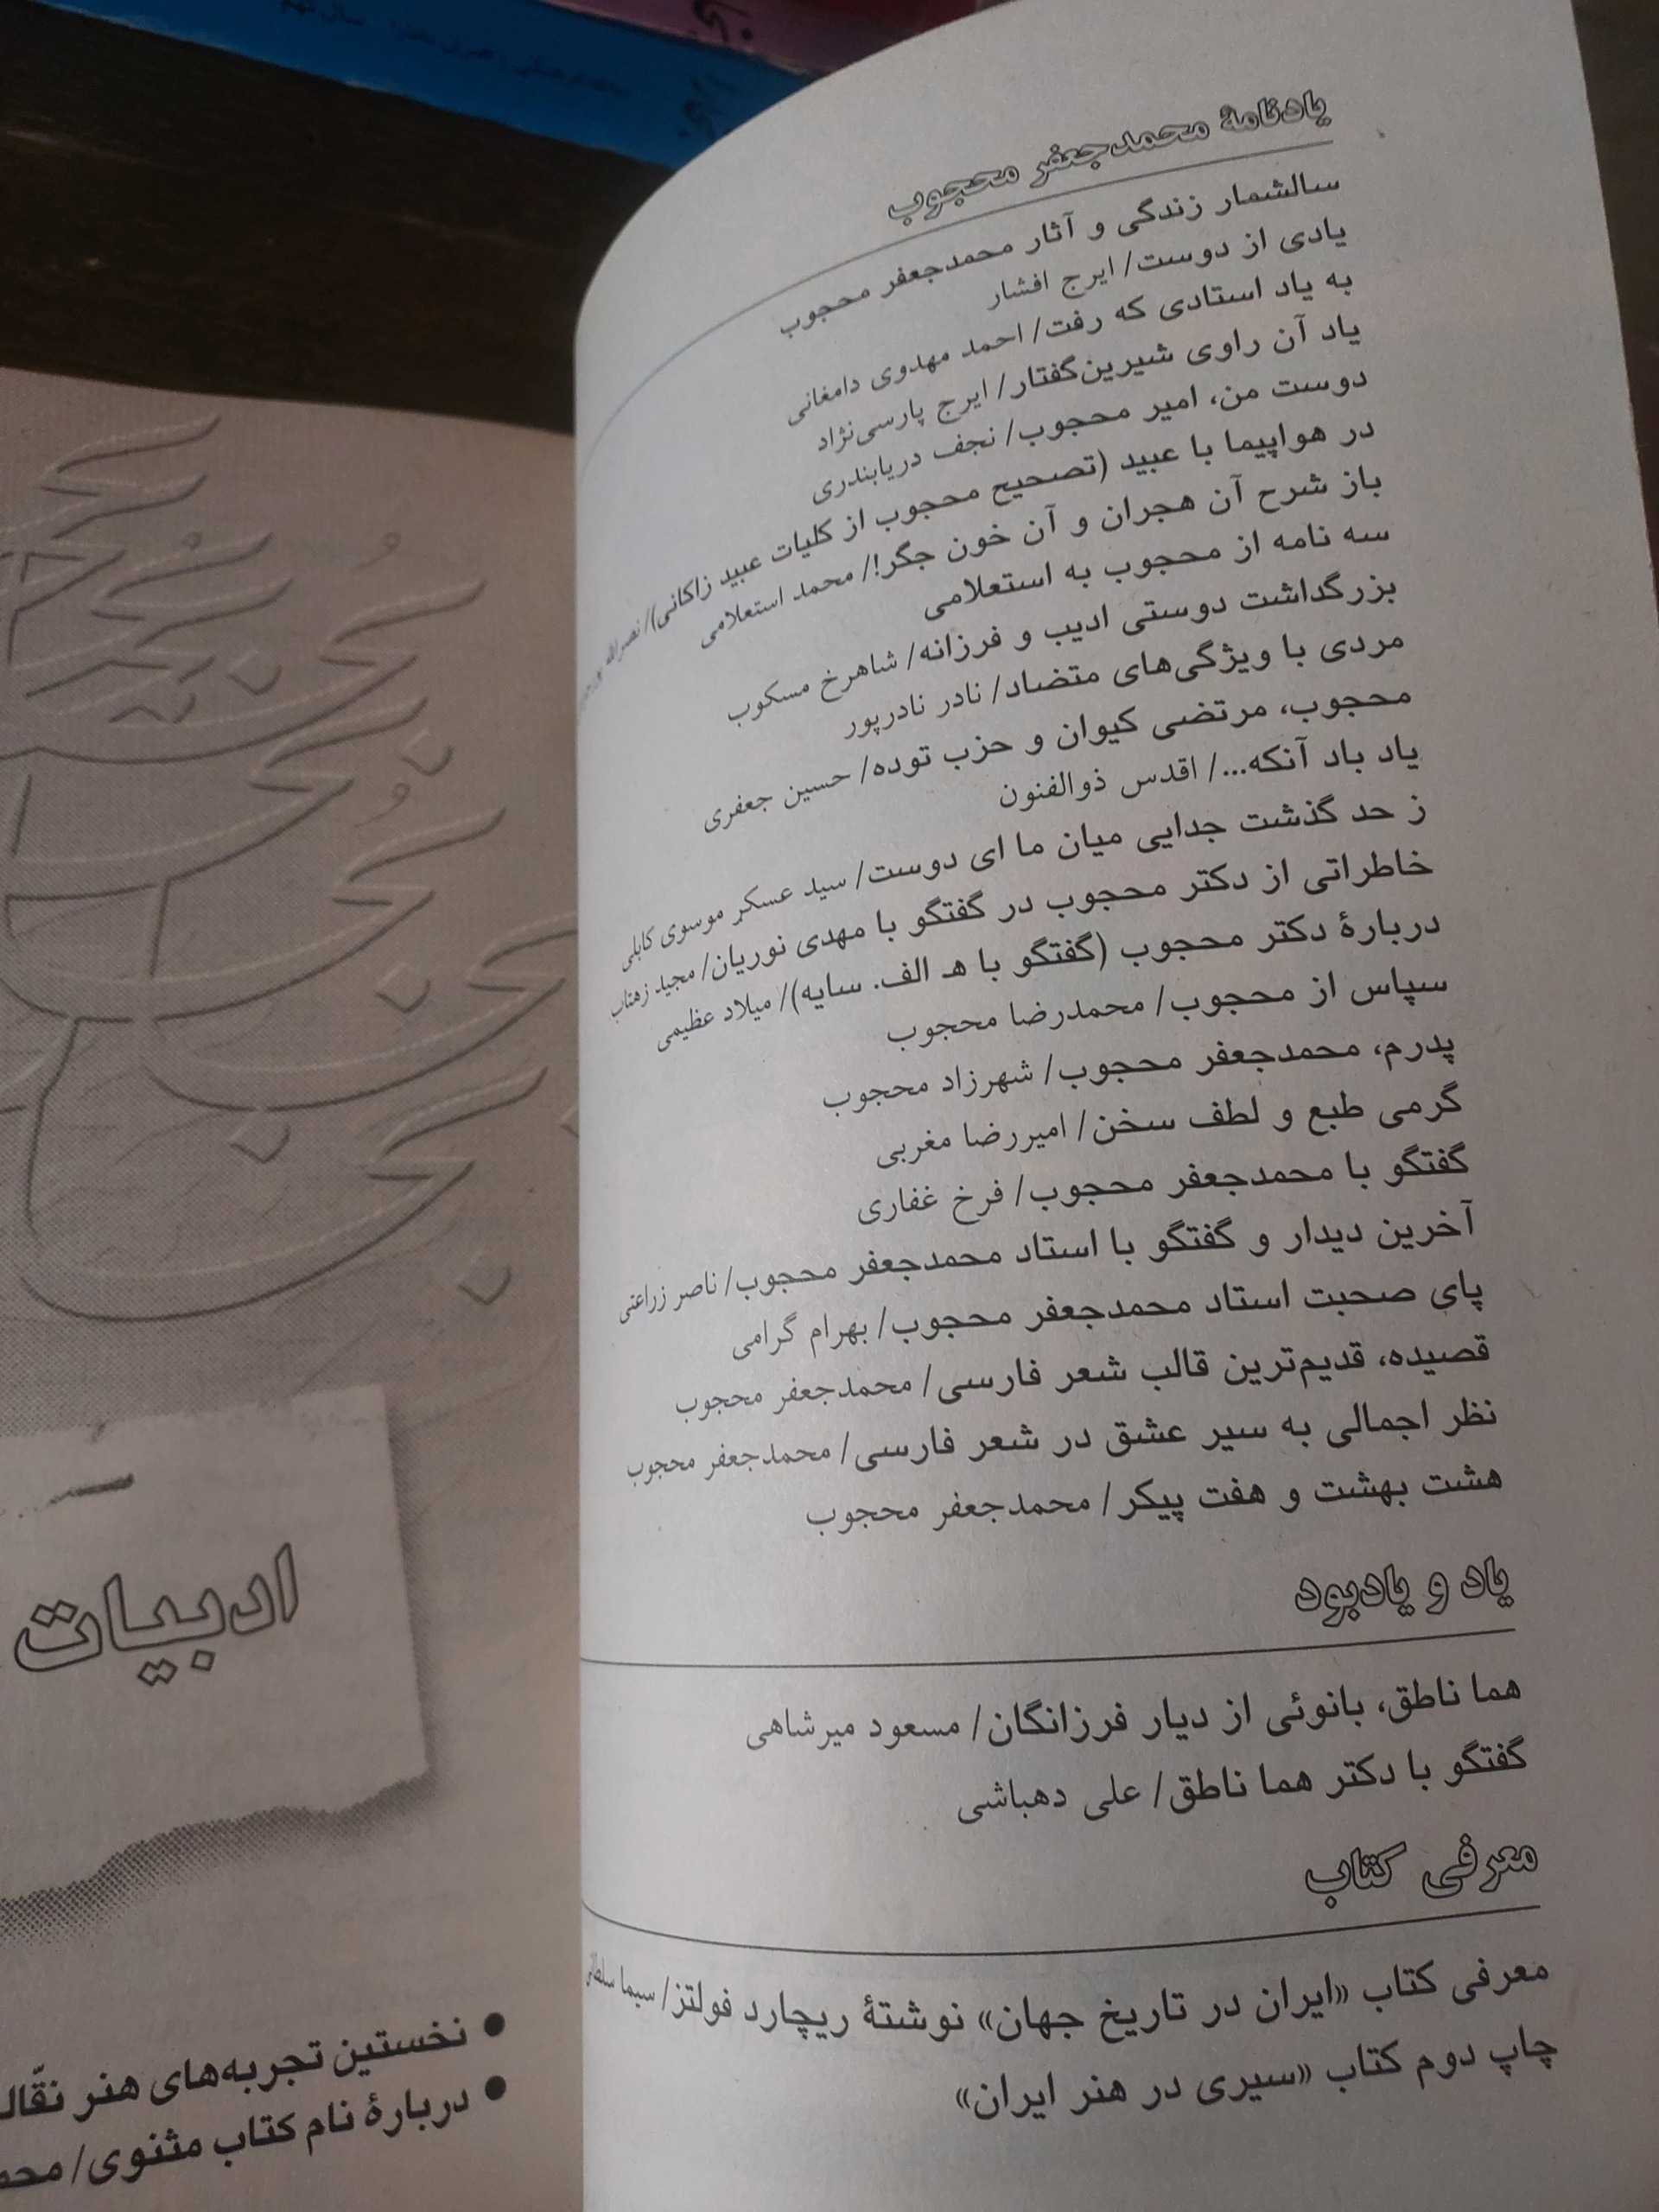 یادنامهٔ محمدجعفر محجوب
سالشمار زندگی و آثار محمدجعفر محجوب
یادی از دوست/ ایرج افشار
به یاد استادی که رفت/ احمد مهدوی دامغانی
یاد آن راوی شیرین‌گفتار/ ایرج پارسی‌نژاد
دوست من، امیر محجوب/ نجف دریابندری
در هواپیما با عبید (تصحیح محجوب از کلیات عبید زاکانی)/ نصرالله
باز شرح آن هجران و آن خون جگر!/ محمد استعلامی
سه نامه از محجوب به استعلامی
بزرگداشت دوستی ادیب و فرزانه/ شاهرخ مسکوب
مردی با ویژگی‌های متضاد/ نادر نادرپور
محجوب، مرتضی کیوان و حزب توده/ حسین جعفری
یاد باد آنکه.../ اقدس ذوالفنون
ز حد گذشت جدایی میان ما ای دوست/ سید عسکر موسوی کابلی
خاطراتی از دکتر محجوب در گفتگو با مهدی نوریان/ مجید زهتاب
دربارهٔ دکتر محجوب (گفتگو با هـ الف. سایه)/ میلاد عظیمی
سپاس از محجوب/ محمدرضا محجوب
پدرم، محمدجعفر محجوب/ شهرزاد محجوب
گرمی طبع و لطف سخن/ امیررضا مغربی
گفتگو با محمدجعفر محجوب/ فرخ غفاری
آخرین دیدار و گفتگو با استاد محمدجعفر محجوب/ ناصر زراعتی
پای صحبت استاد محمدجعفر محجوب/ بهرام گرامی
قصیده، قدیم‌ترین قالب شعر فارسی/ محمدجعفر محجوب
نظر اجمالی به سیر عشق در شعر فارسی/ محمدجعفر محجوب
هشت بهشت و هفت پیکر/ محمدجعفر محجوب
یاد و یادبود
هما ناطق، بانوئی از دیار فرزانگان/ مسعود میرشاهی
گفتگو با دکتر هما ناطق/ علی دهباشی
معرفی کتاب
معرفی کتاب «ایران در تاریخ جهان» نوشتهٔ ریچارد فولتز/ سیما سلطانی
چاپ دوم کتاب «سیری در هنر ایران»
ادبیات
● نخستین تجربه‌های هنر نقّال
● دربارهٔ نام کتاب مثنوی/ محم